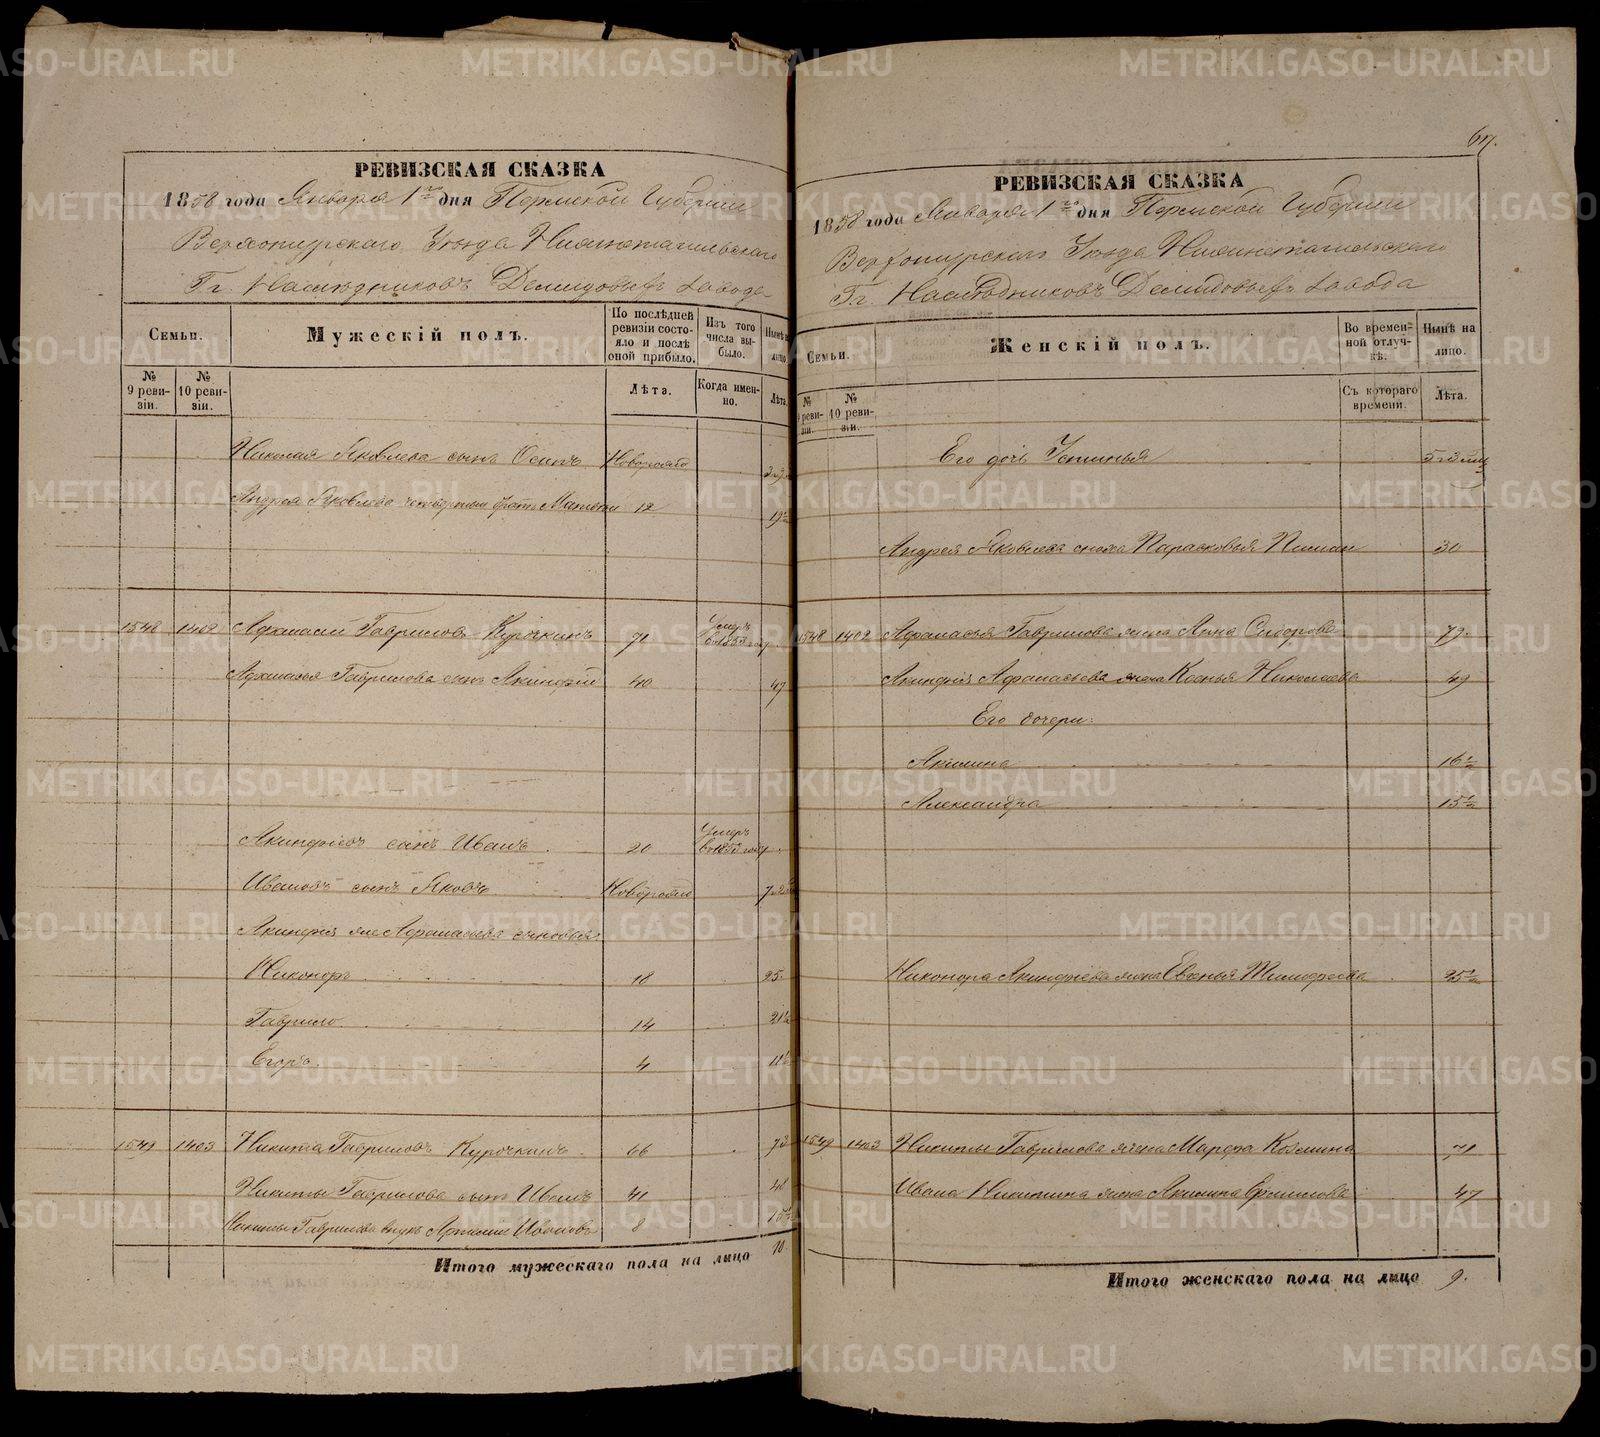 67.
РЕВИЗСКАЯ СКАЗКА
1858 года Января 1го дня Пермской Губернии
Верхотурскаго Уезда Нижнетагильскаго
Гг. Наследниковъ Демидовыхъ завода
Семьи.
Мужескій полъ.
По последней ревизіи состояло и после оной прибыло.
Изъ того числа выбыло.
Ныне на лицо.
№ 9 ревизіи.
№ 10 ревизіи.
Лѣта.
Когда именно.
Лѣта.
Николая Яковлева сынъ Осипъ Новорожд
Андрея Яковлева четвертый братъ 12 19½
1548 1402 Афанасий Гавриловъ Курочкинъ 71 Умеръ в 1853 году
Афанасья Гаврилова сынъ Акинфий 40 47
Акинфіевъ сынъ Иванъ 20 Умеръ
Ивановъ сынъ Яковъ Новорожд
Акинфия же Афанасьева сыновья:
Никоноръ 18 25
Гаврило 14 21½
Егоръ 4 11½
1549 1403 Никита Гавриловъ Курочкинъ 66 73
Никиты Гаврилова сынъ Иванъ 41 48
Никиты Гаврилова внукъ Ивановъ 8 15½
Итого мужескаго пола на лицо 10
РЕВИЗСКАЯ СКАЗКА
1858 года Января 1го дня Пермской Губернии
Верхотурскаго Уезда Нижнетагильскаго
Гг. Наследниковъ Демидовыхъ завода
Семьи.
Женскій полъ.
Во временной отлучкѣ.
Нынѣ на лицо.
№ 9 ревизіи.
№ 10 ревизіи.
Съ котораго времени.
Лѣта.
Его дочь Устинья
Андрея Яковлева сноха Парасковья 30
1548 1402 Афанасья Гаврилова жена Анна Сидорова 79
Акинфия Афанасьева жена Ксенья Николаева 49
Его дочери:
Акилина 16½
Александра 15½
Никонора Акинфиева жена Евгенья Тимофеева 25½
1549 1403 Никиты Гаврилова жена Марфа Козмина 71
Ивана Никитина жена Акилина Ермилова 47
Итого женскаго пола на лицо 9.
METRIKI.GASO-URAL.RU